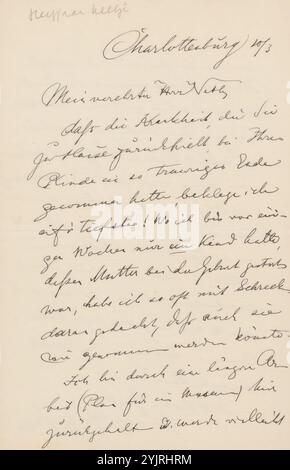 Charlottenburg 10/3
Mein verehrter Herr Veth,
daß die Krankheit, die Sie
zu Hause zurückhielt, bei Ihrem
Kinde ein so trauriges Ende
genommen hatte, beklage ich
auf's tiefste! Wo ich bis vor eini-
gen Wochen nur ein Kind hatte
dessen Mutter bei der Geburt gestorben
war, habe ich so oft mit Schreck
daran gedacht, daß auch sie
mir genommen werden könnte
Ich bin durch ein längere Ar-
beit (Plan für ein Museum) hier
zurückgehalten u. werde vielleicht
alamy
Image ID: 2YJRHRM
www.alamy.com